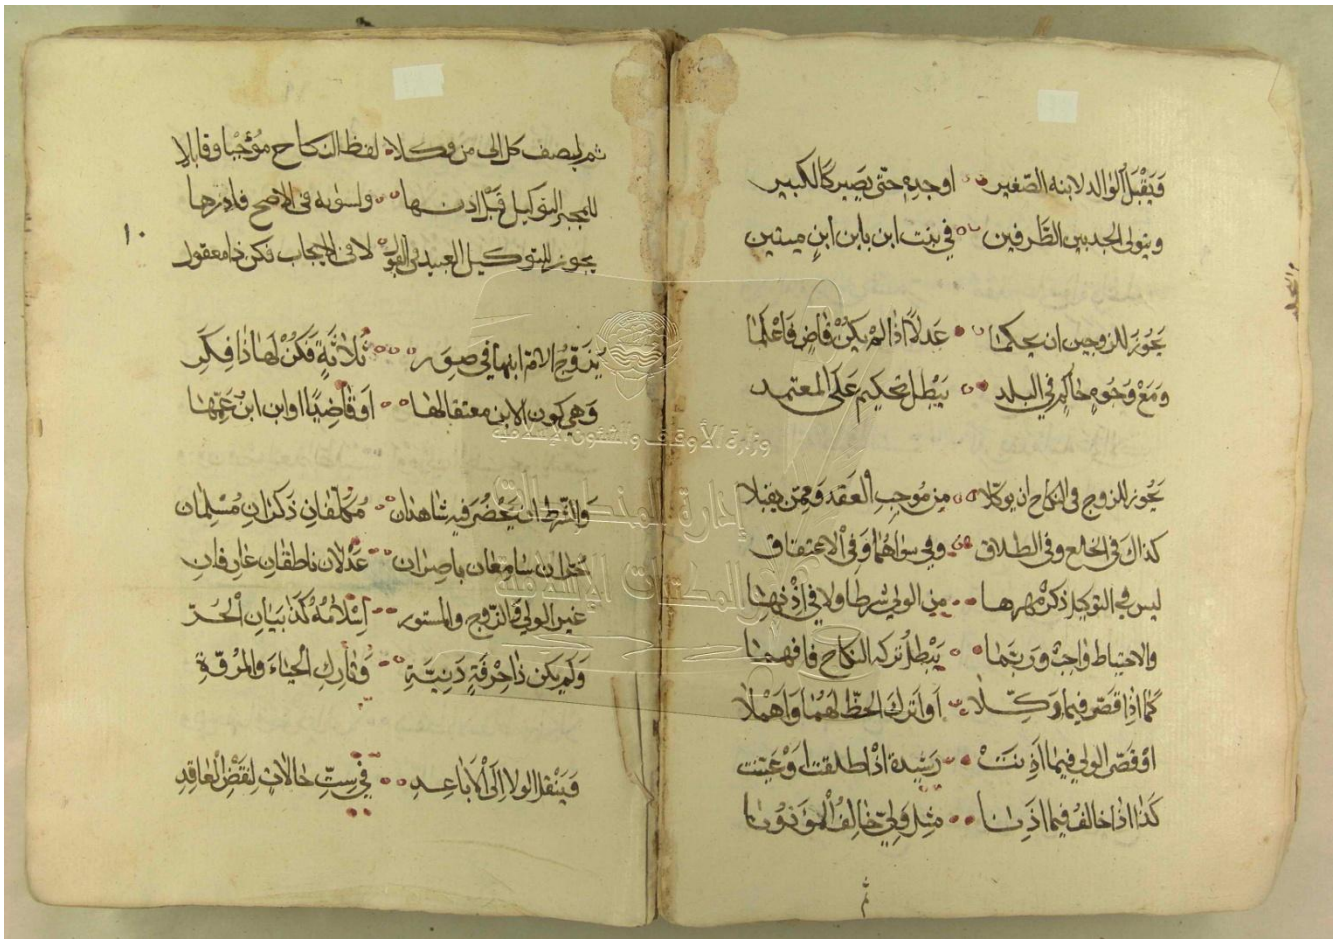 فيقبل الوالد لابنه الصغير او جده حتى يصير كالكبير
ويتولى الجد بين الطرفين في بنت ابن بابن ابن ميتين
يجوز للزوجين ان يحكما عدلا اذا لم يكن قاض فاعلما
ومع وجود حاكم في البلد يبطل تحكيم على المعتمد
يجوز للزوج في النكاح ان يوكلا من موجب العقد وممن يقبلا
كذاك في الخلع وفي الطلاق وفي سواهما وفي الاعتقاق
ليس في التوكيل ذكر مهرها من الولي شرطا ولا في اذنها
والاحتياط واجب وربما يبطل تركه النكاح فافهما
كما اذا قصر فيما وكلا او اترك الحظ لها واهملا
او قصر الولي فيما اذنت رشيدة اذ اطلقت او عينت
كذا اذا خالف فيما اذنا مثل ولي خالف المؤذونا
ثم
ثم ليصف كل الى من وكلا لفظ النكاح موجبا وقابلا
للمجبر التوكيل قبل اذنها ولسواه في الاصح فادرها
يجوز للتوكيل العبد في القبول لا في الايجاب فكن ذا معقول
١٠
يزوج الامة ابنها في صور ثلاثة فكن لها ذا فكر
وهي كون الابن معتقا لها او قاضيا او ابن ابن عمها
والشرط ان يحضر فيه شاهدان مكلفان ذكران مسلمان
حران سامعان باصران عدلان ناطقان عارفان
غير الولي والزوج والمستور اسلامه كذا بيان الحر
ولم يكن ذا حرفة دنية وتارك الحياء والمروة
وينقل الولا الى الاباعد في ست حالات لنقض العاقد
وزارة الأوقاف والشئون الإسلامية
إدارة المخطوطات
والمكتبات الإسلامية